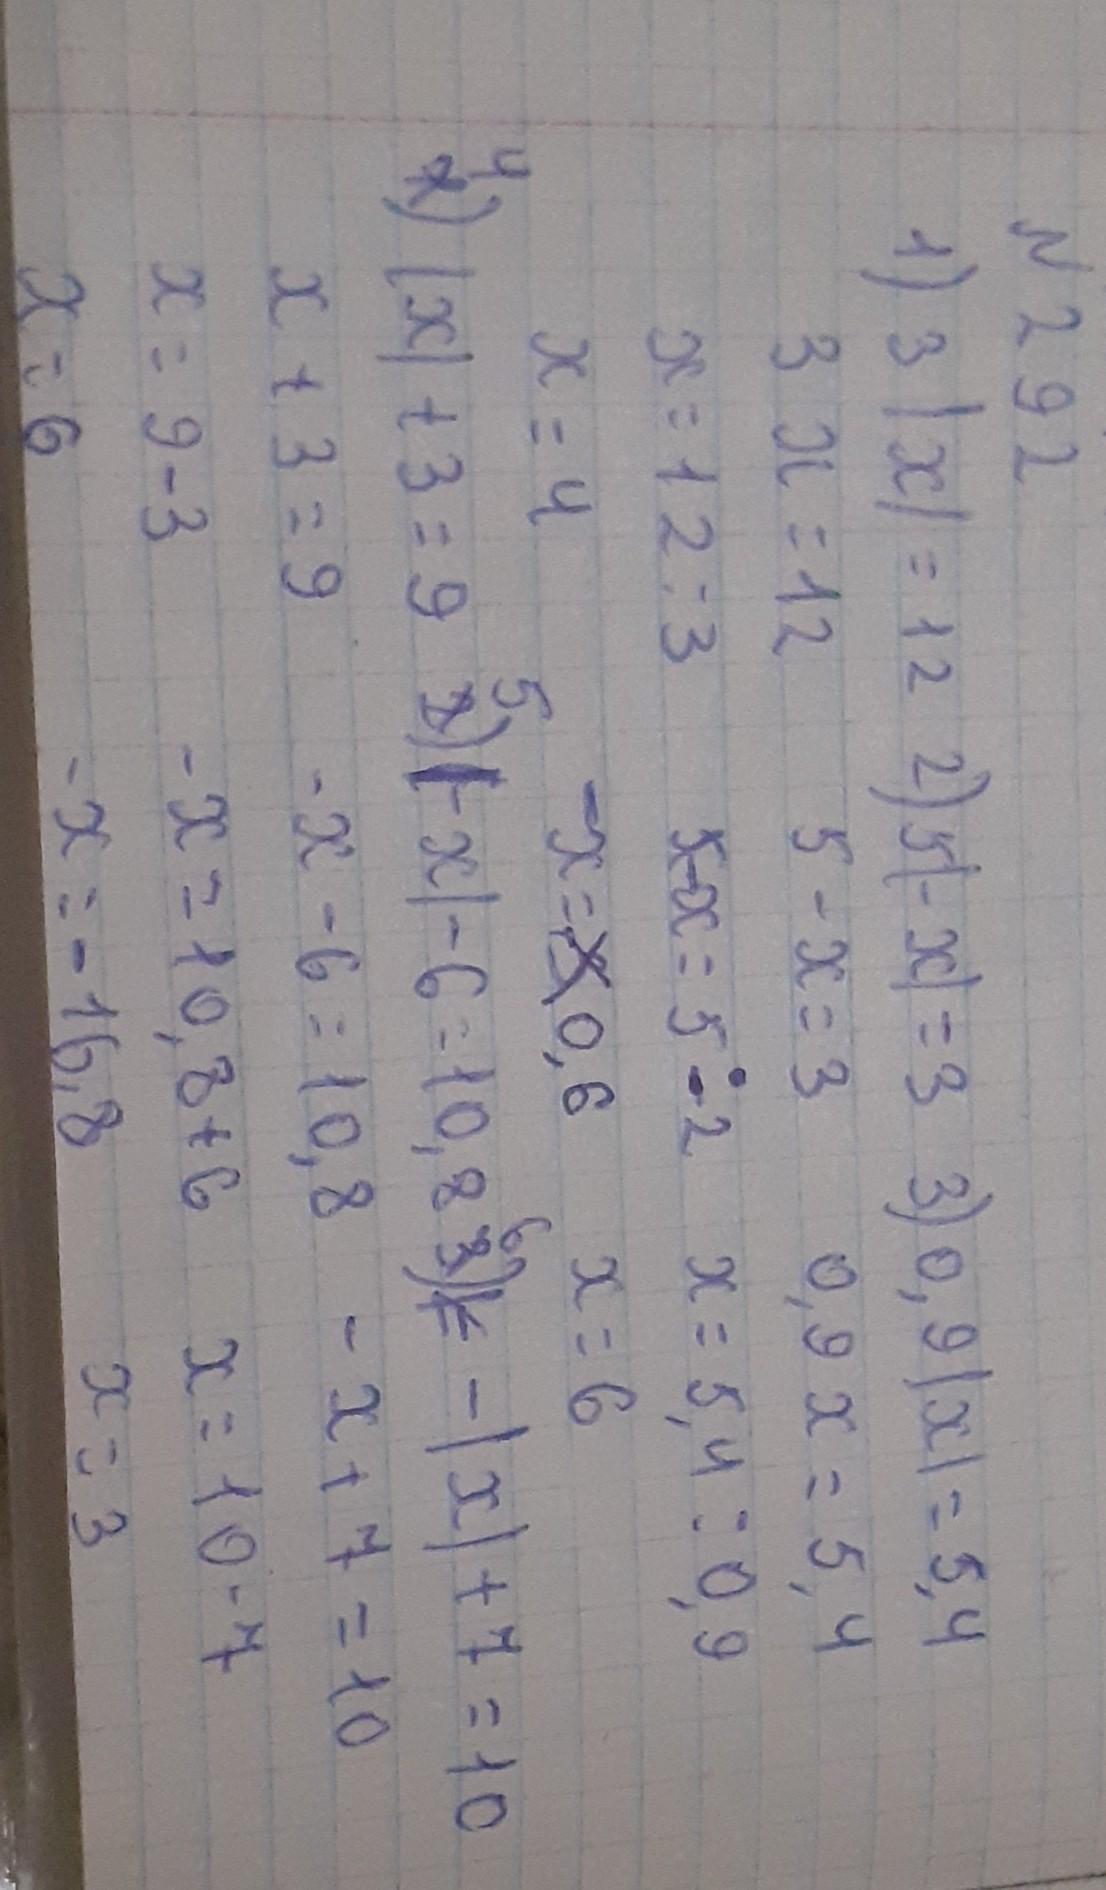 N 292
1) 3|x| = 12 2) 5|-x| = 3 3) 0,9|x| = 5,4
3x = 12 5 - x = 3 0,9x = 5,4
x = 12 : 3 x = 5 2 x = 5,4 : 0,9
x = 4 -x = 0,6 x = 6
4) |x| + 3 = 9 5) |-x| - 6 = 10,8 6) -|x| + 7 = 10
x + 3 = 9 -x - 6 = 10,8 -x + 7 = 10
x = 9 - 3 -x = 10,8 + 6 x = 10 - 7
x = 6 -x = -16,8 x = 3